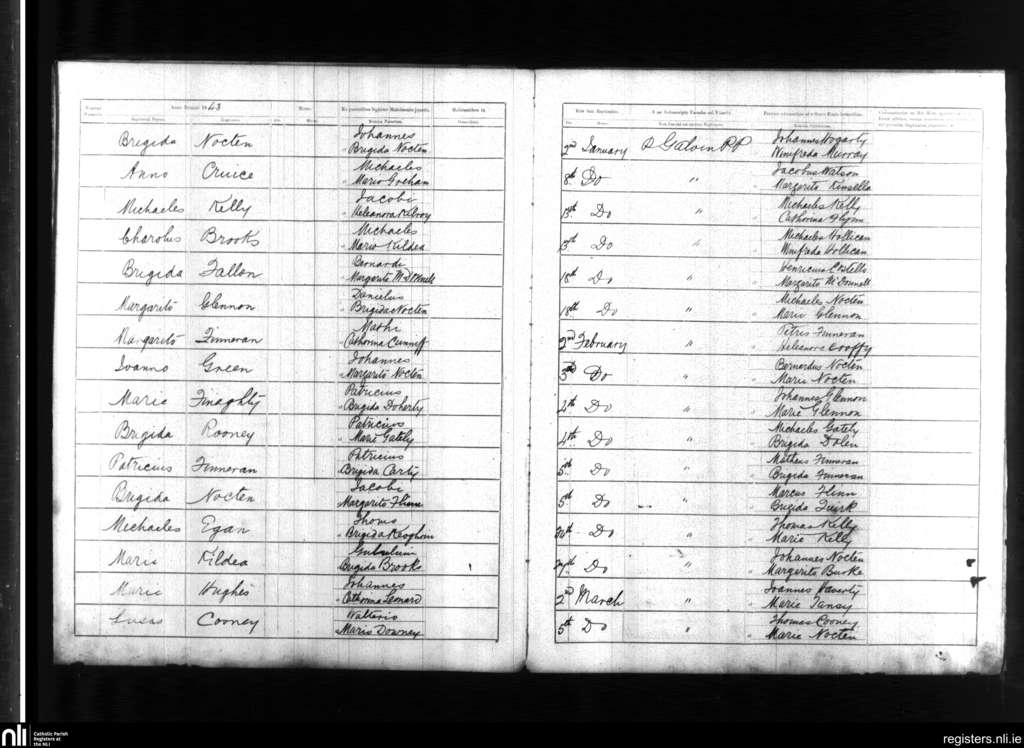 Anno Domini 1863
Brigida Nocten Johannes
Brigida Nocten
Anno Cruice Michaeles
" Mario Grehan
Michaeles Kelly Jacobi
" Heleanora Kilroy
Charolus Brooks Michaeles
" Mario Kildea
Brigida Fallon Bernardi
" Margarito
Margarito Glennon Danielus
" Brigida Nocten
Margarito Finneran Mathi
" Cathorina Cunniff
Ivanno Green Johannes
" Margarito Nocten
Marie Finaghty Patricius
" Brigida Doherty
Brigida Rooney Patricius
" Marie Gately
Patricius Finneran Patricius
Brigida Carty
Brigida Nocten Jacobi
Margarito Flinn
Michaeles Egan Thoms
" Brigida Keoghoun
Marie Kildea
Brigida Brooks
Marie Hughes Johannes
" Cathorina Leonard
Lucas Cooney Walteris
" Marie Downey
2nd January P Galvin PP Johannes Hogarty
Winifreda Murray
8th Do " Jacobus Watson
" Margarito Kinsella
13th Do " Michaeles Kelly
" Cathorina Flynn
13th Do " Michaeles Hollican
" Winifreda Hollican
18th Do " Henricus Costello
" Margarito McDonnell
18th Do " Michaeles Nocten
" Marie Glennon
2nd February " Petris Finneran
" Heleanora
3rd Do " Bernardus Nocten
" Marie Nocten
4th Do " Johannes Glennon
" Marie Glennon
4th Do " Michaeles Gately
" Brigida Dolen
5th Do " Matheus Finneran
" Brigida Finneran
5th Do " Marcus Flinn
" Brigida Quirk
20th Do " Thomas Kelly
" Marie Kelly
Do " Johannes Nocten
" Margarito Burke
2nd March " Joannes Haverty
" Marie Tansy
5th Do " Thomas Cooney
" Marie Nocten
nli Catholic Parish
Registers at
the NLI
registers.nli.ie